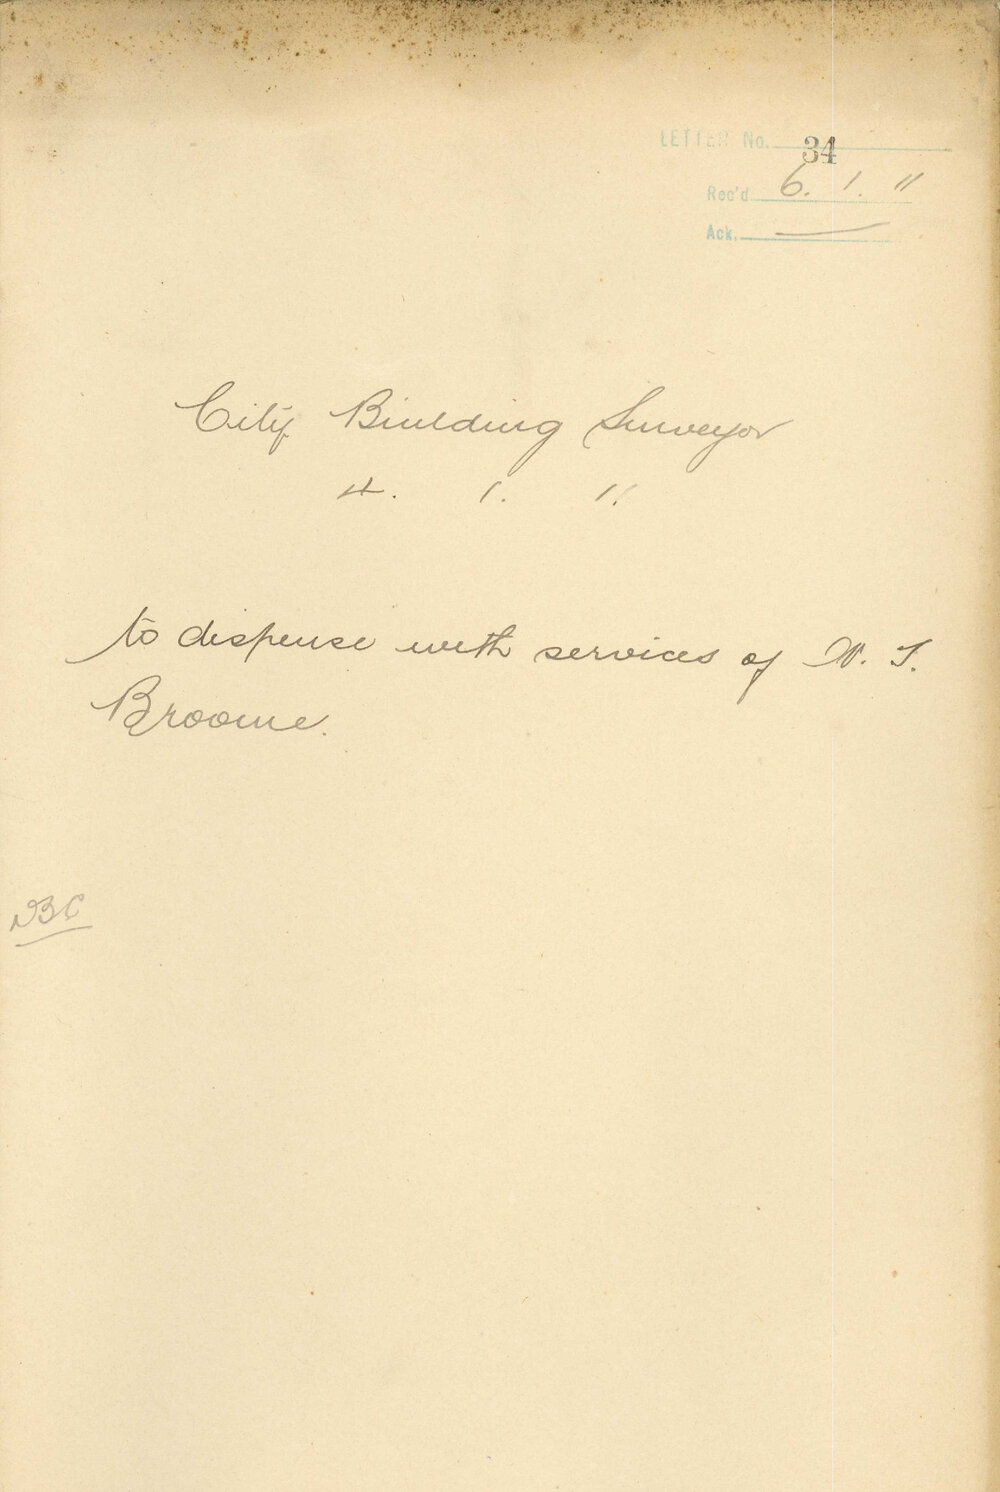 LETTER No. 34
Rec'd 6. 1. 11
Ack. —
City Building Surveyor
4. 1. 11
to dispense with services of W. T.
Broome.